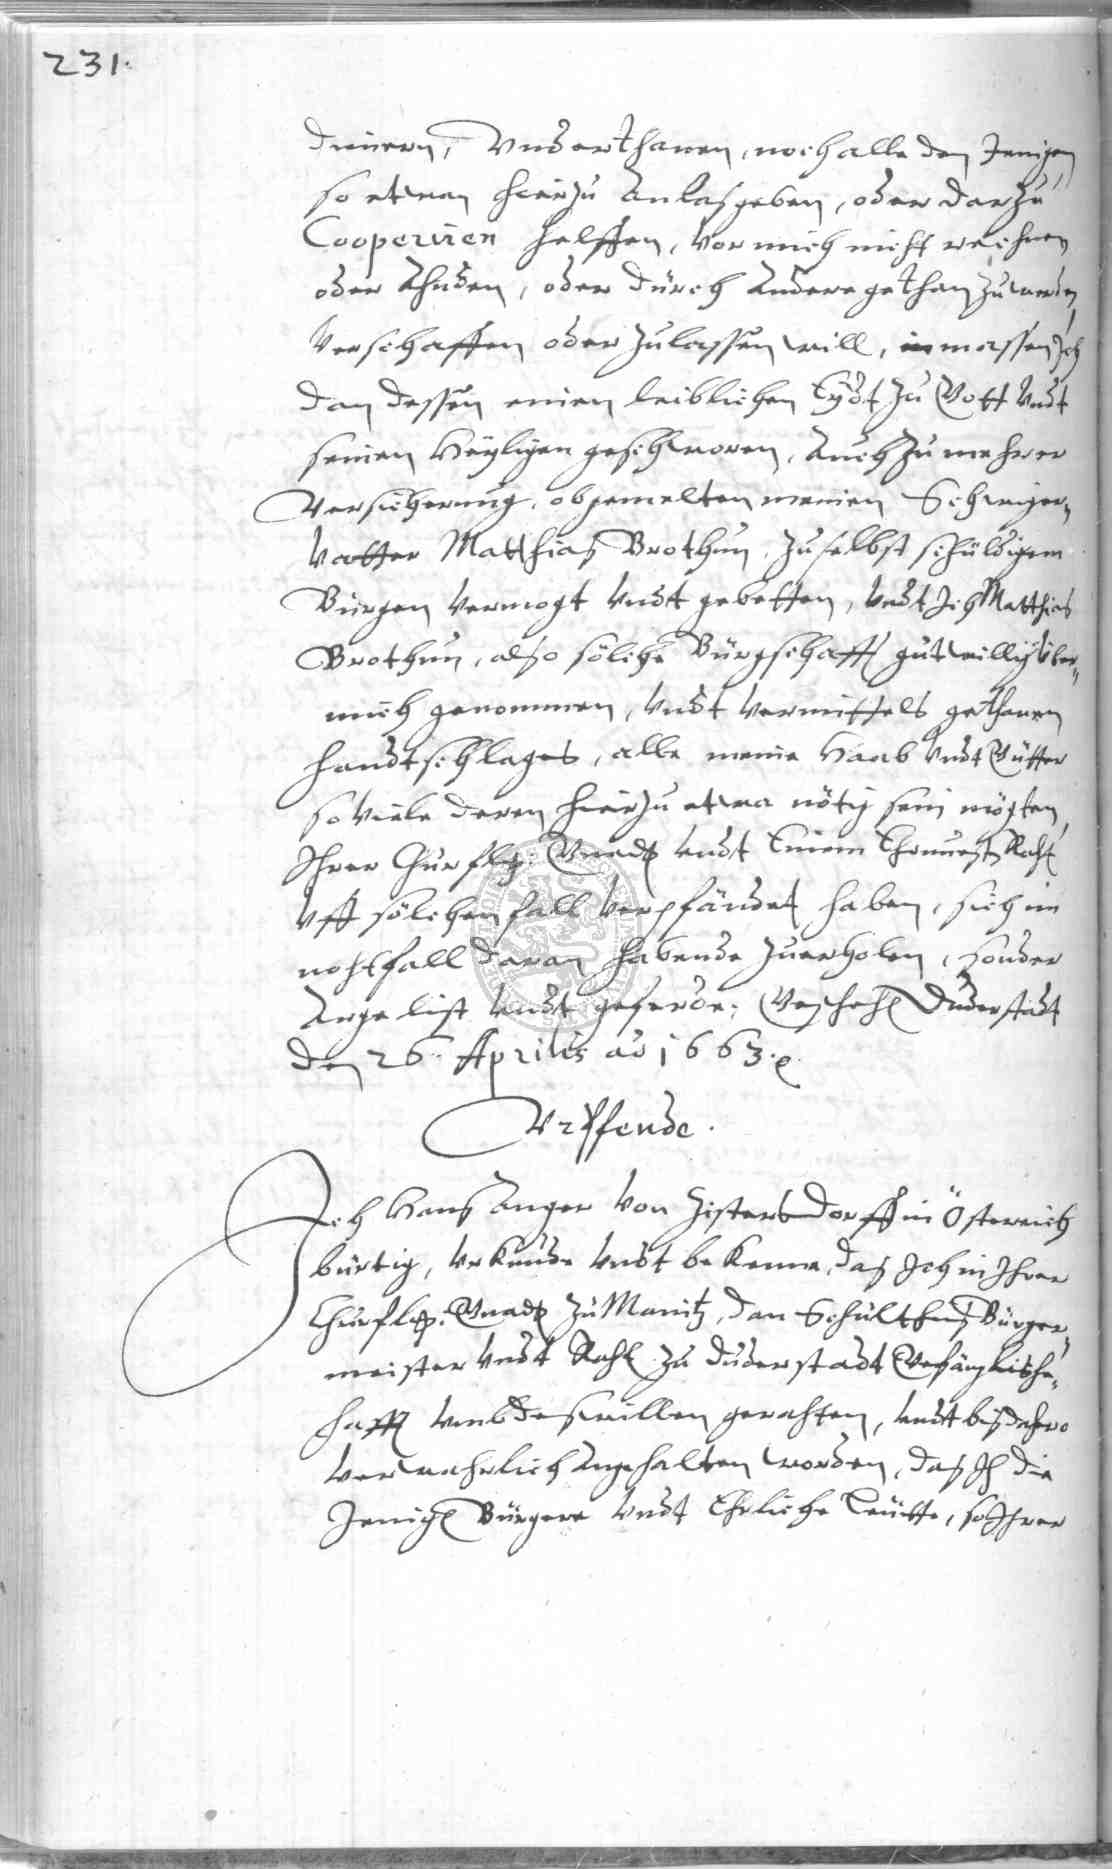 231.
dienern, Vnderthanen, noch alle den Jenigen,
so etwan hierzu Anlaß geben, oder darzu
Cooperiren helffen, vor mich nicht rechnen
oder Ahnden, oder durch Andere gethan zu werden,
Verschaffen oder zulassen will, inmassen Jch
dan dessen einen leiblichen Eydt zu Gott Vndt
seinen Heyligen geschworen, Auch zu mehrer
Versicherung, obgemelten meinen Schwiger
Vatter Matthias Brothun, zu selbst schuldigem
Bürgen Vermogt Vndt gebetten, Vndt Jch Matthias
Brothun, also solche Bürgschafft gutwillig vber
mich genommen, Vndt Vermittels gethanen
handtschlages, alle meine Haab Vndt Gütter
so Viele deren hierzu etwa nötig sein mögten,
Jhrer Churflg: Gnadt Vndt Einem Ehrnuest Raht
Vff solchen fall Verpfändet haben, sich im
nohtfall daran habende zuerholen, sonder
Arge list Vndt geferde; Geschehen Duderstadt
den 26. Aprilis ao 1663.
Vrffende.
Jch Hanß Anger von Zistersdorff in Östereich
bürtig, Vrkunde Vndt bekenne, daß Jch in Jhrer
Churflg: Gnadt zu Maintz, dan Schultheiß Bürger
meister Vndt Raht zu Duderstadt Gefängliche
hafft Vmb deswillen gerahten, Vndt bißdahero
Verwahrlich Angehalten worden, daß Jch die
Jenige Bürgere Vndt Ehrliche Leutte, so Jhrer